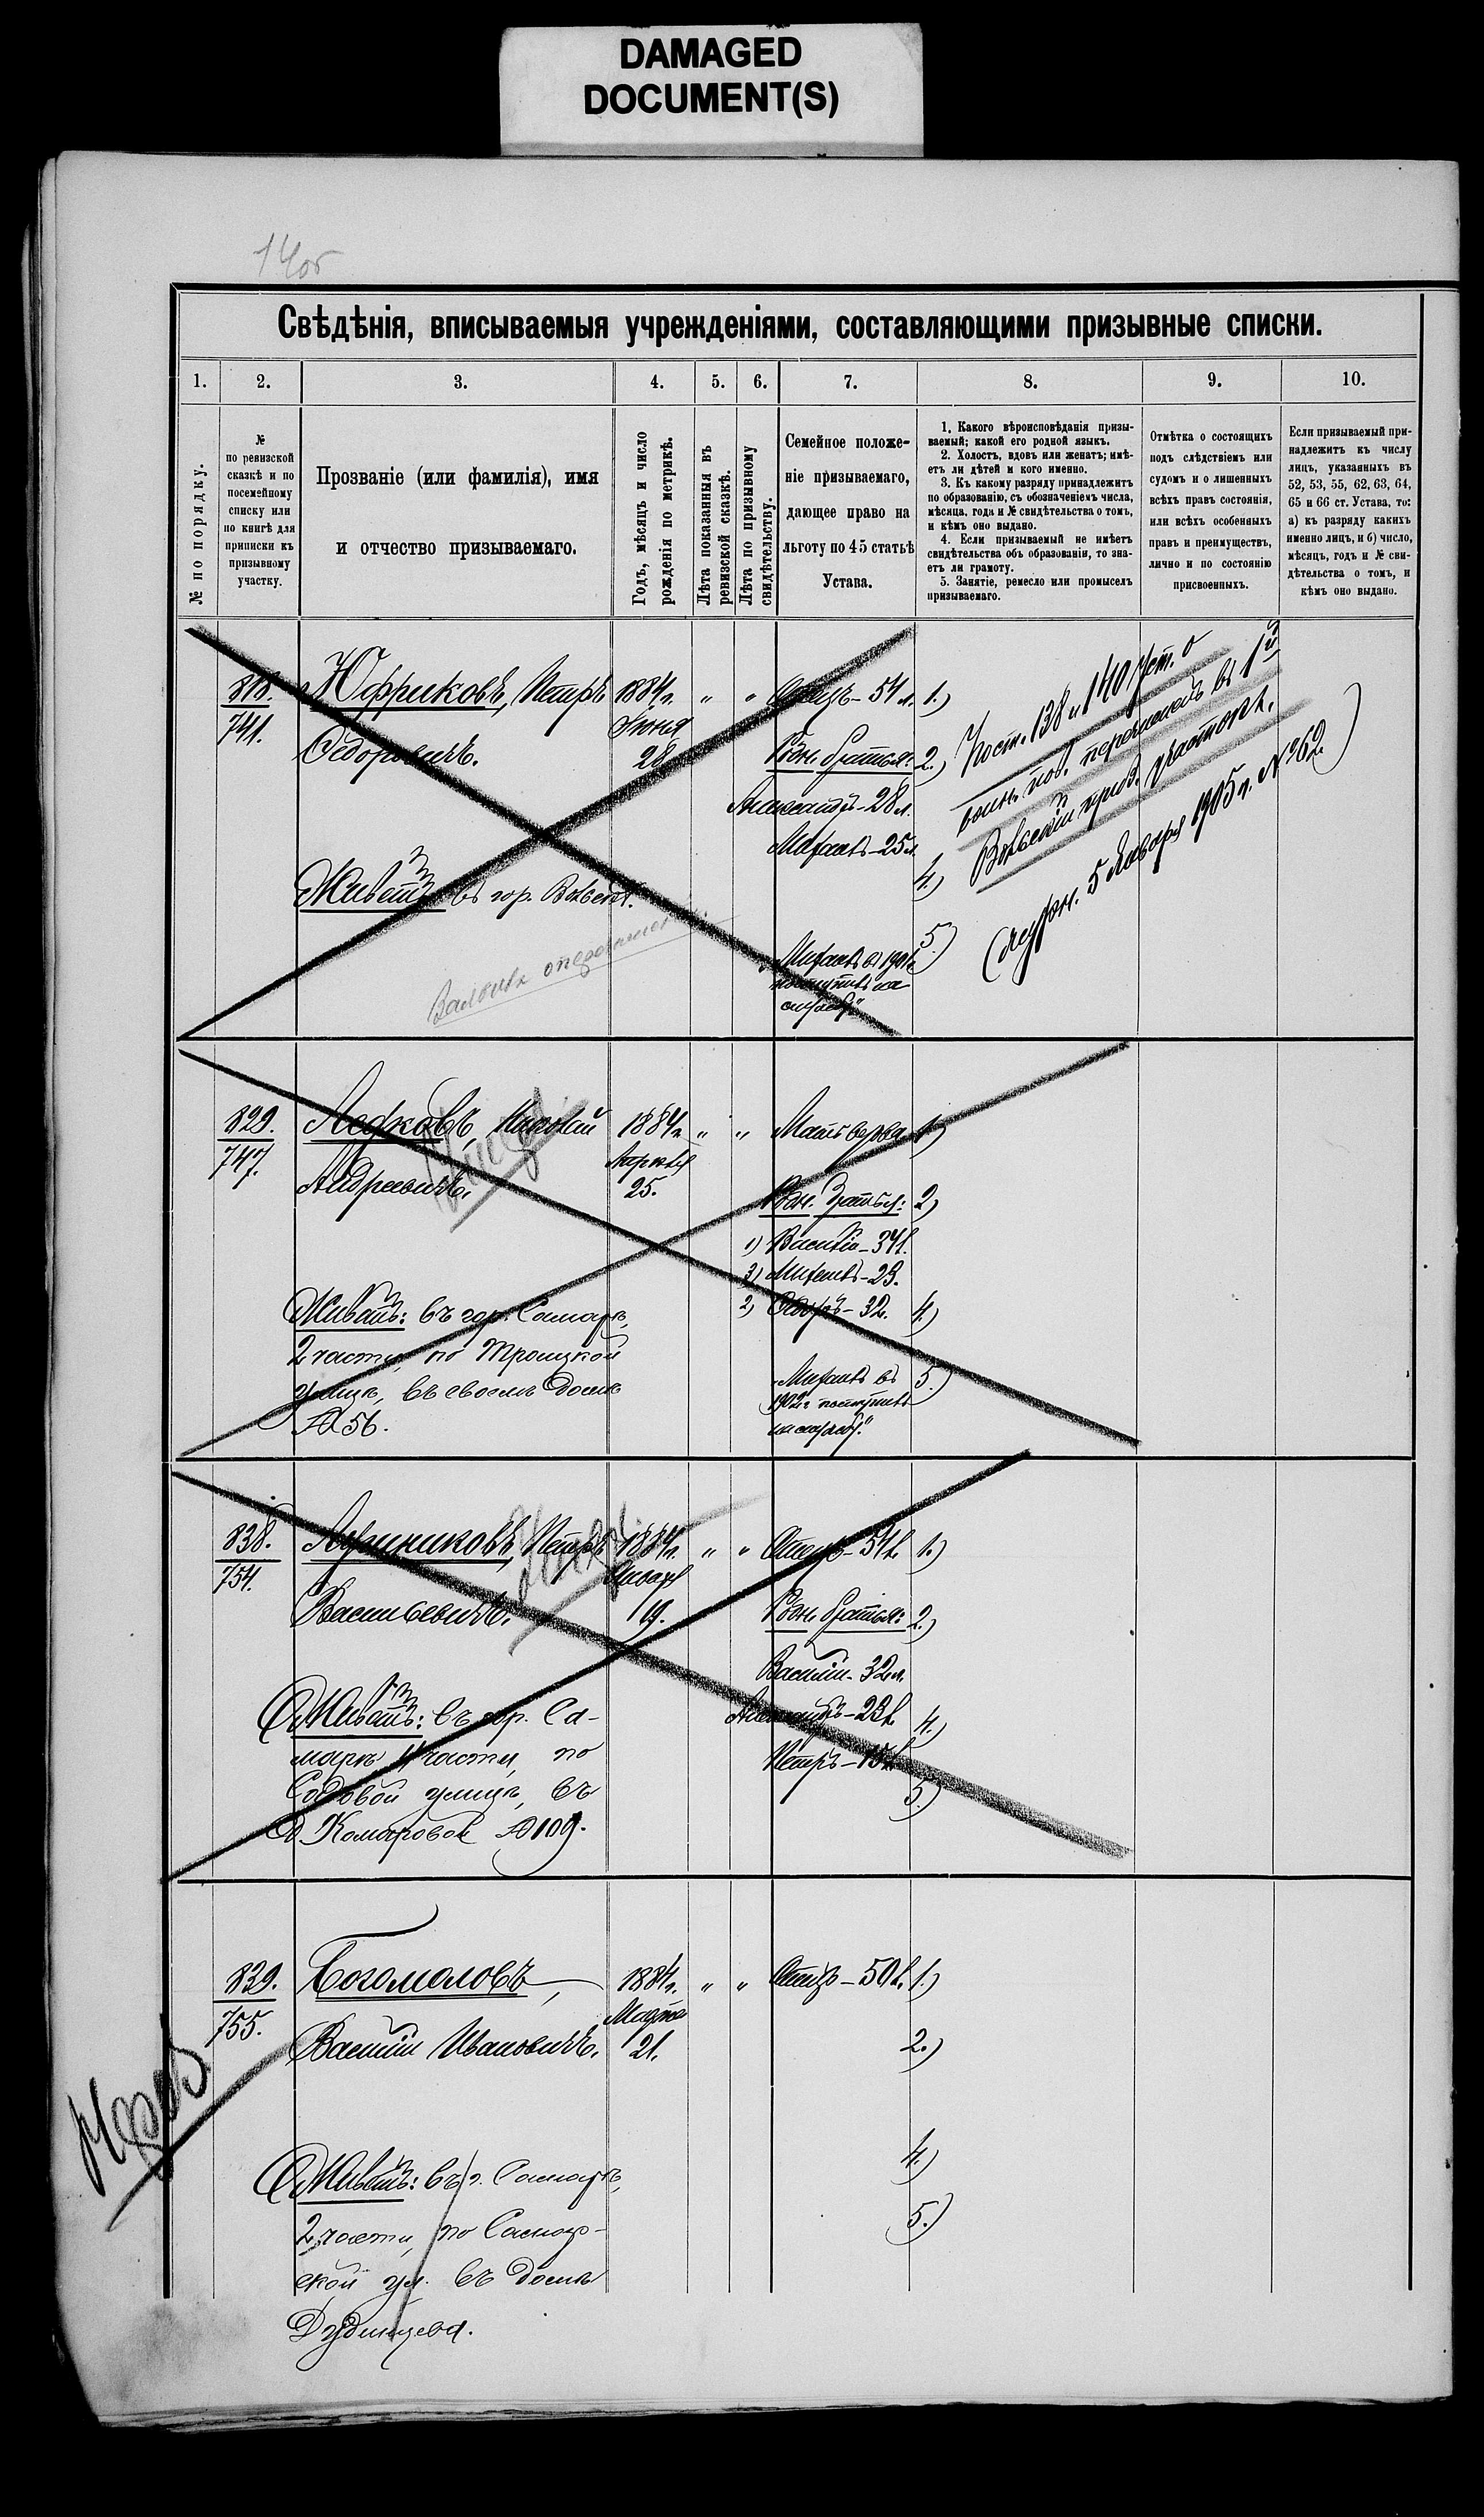 DAMAGED
DOCUMENT(S)
14об
Свѣдѣнія, вписываемыя учрежденіями, составляющими призывные списки.
1. 2. 3. 4. 5. 6. 7. 8. 9. 10.
№ по порядку.
№
по ревизской
сказкѣ и по
посемейному
списку или
по книгѣ для
приписки къ
призывному
участку.
Прозваніе (или фамилія), имя
и отчество призываемаго.
Годъ, мѣсяцъ и число
рожденія по метрикѣ.
Лѣта показанныя въ
ревизской сказкѣ.
Лѣта по призывному
свидѣтельству.
Семейное положе-
ніе призываемаго,
дающее право на
льготу по 45 статьѣ
Устава.
1. Какого вѣроисповѣданія призы-
ваемый; какой его родной языкъ.
2. Холостъ, вдовъ или женатъ; имѣ-
етъ ли дѣтей и кого именно.
3. Къ какому разряду принадлежитъ
по образованію, съ обозначеніемъ числа,
мѣсяца, года и № свидѣтельства о томъ,
и кѣмъ оно выдано.
4. Если призываемый не имѣетъ
свидѣтельства объ образованіи, то зна-
етъ ли грамоту.
5. Занятіе, ремесло или промыселъ
призываемаго.
Отмѣтка о состоящихъ
подъ слѣдствіемъ или
судомъ и о лишенныхъ
всѣхъ правъ состоянія,
или всѣхъ особенныхъ
правъ и преимуществъ,
лично и по состоянію
присвоенныхъ.
Если призываемый при-
надлежитъ къ числу
лицъ, указанныхъ въ
52, 53, 55, 62, 63, 64,
65 и 66 ст. Устава, то:
а) къ разряду какихъ
именно лицъ, и б) число,
мѣсяцъ, годъ и № сви-
дѣтельства о томъ, и
кѣмъ оно выдано.
818.
741.
Юфриковъ, Петръ
Ѳедоровичъ.
1884г.
Іюня
28
" "
Отецъ - 54 л.
Родн. братья:
Александръ - 28 л.
Михаилъ - 25 л.
Михаилъ въ 1901г.
поступилъ на
1.)
2.)
4.)
5.)
138 и 140 Уст. о
воин. пов. перечисленъ въ 1й
приз. участокъ.
5 Января 1905 г. № 62)
Живетъ въ гор.
829.
747.
Николай
Андреевичъ.
1884г.
Апрѣля
25.
" "
Мать вдова
Родн. братья:
1) Василій - 34 л.
3) Михаилъ - 23.
2) Ѳедоръ - 32.
Михаилъ въ
1902г. поступилъ
1.)
2)
4.)
5.)
Живетъ: въ гор. Самарѣ,
2 части, по Троицкой
улицѣ, въ своемъ домѣ
№ 56.
838.
754.
Петръ
Васильевичъ.
1884г.
Января
19.
" "
Отецъ - 54 л.
Родн. братья:
Василій - 32 л.
Александръ - 23 л.
Петръ - 15 л.
1.)
2.)
4.)
5.)
Живетъ: въ гор. Са-
марѣ 4 части, по
Садовой улицѣ, въ
д. Комаровой № 109.
839.
755.
Богомоловъ,
Василій Ивановичъ.
1884г.
Марта
21.
" "
Отецъ - 50 л.
1.)
2.)
4.)
5.)
Живетъ: въ г. Самарѣ,
2 части, по Самар-
ской ул. въ домѣ
Дудинцева.